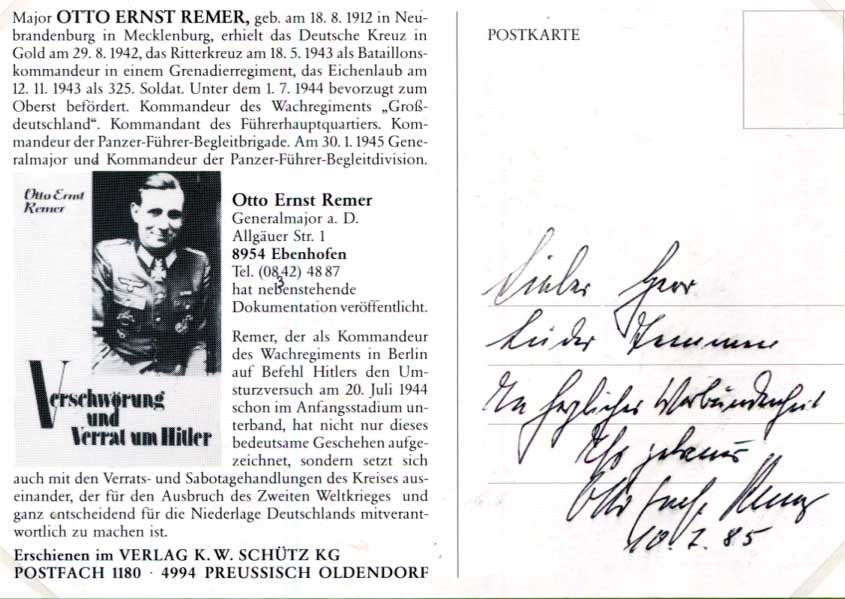 Major OTTO ERNST REMER, geb. am 18. 8. 1912 in Neu-
brandenburg in Mecklenburg, erhielt das Deutsche Kreuz in
Gold am 29. 8. 1942, das Ritterkreuz am 18. 5. 1943 als Bataillons-
kommandeur in einem Grenadierregiment, das Eichenlaub am
12. 11. 1943 als 325. Soldat. Unter dem 1. 7. 1944 bevorzugt zum
Oberst befördert. Kommandeur des Wachregiments „Groß-
deutschland“. Kommandant des Führerhauptquartiers. Kom-
mandeur der Panzer-Führer-Begleitbrigade. Am 30. 1. 1945 Gene-
ralmajor und Kommandeur der Panzer-Führer-Begleitdivision.
Otto Ernst
Remer
Verschwörung
und
Verrat um Hitler
Otto Ernst Remer
Generalmajor a. D.
Allgäuer Str. 1
8954 Ebenhofen
Tel. (0842) 48 87
3
hat nebenstehende
Dokumentation veröffentlicht.
Remer, der als Kommandeur
des Wachregiments in Berlin
auf Befehl Hitlers den Um-
sturzversuch am 20. Juli 1944
schon im Anfangsstadium un-
terband, hat nicht nur dieses
bedeutsame Geschehen aufge-
zeichnet, sondern setzt sich
auch mit den Verrats- und Sabotagehandlungen des Kreises aus-
einander, der für den Ausbruch des Zweiten Weltkrieges und
ganz entscheidend für die Niederlage Deutschlands mitverant-
wortlich zu machen ist.
Erschienen im VERLAG K. W. SCHÜTZ KG
POSTFACH 1180 · 4994 PREUSSISCH OLDENDORF
POSTKARTE
Lieber Herr
In herzlicher Verbundenheit
Ihr
Otto Ernst Remer
10. 7. 85